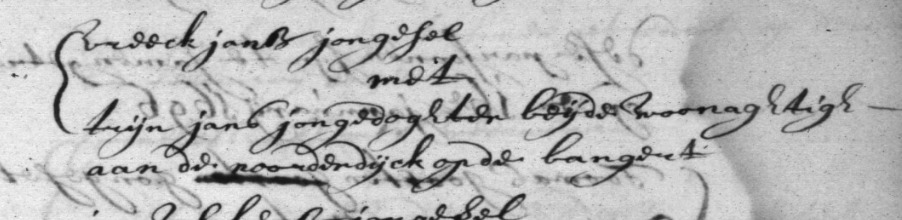 vreeck jans jongesel
met
trijn jans jongedoghter beÿde woonaghtigh
aan de noorderdÿck op de bangert
jongesel